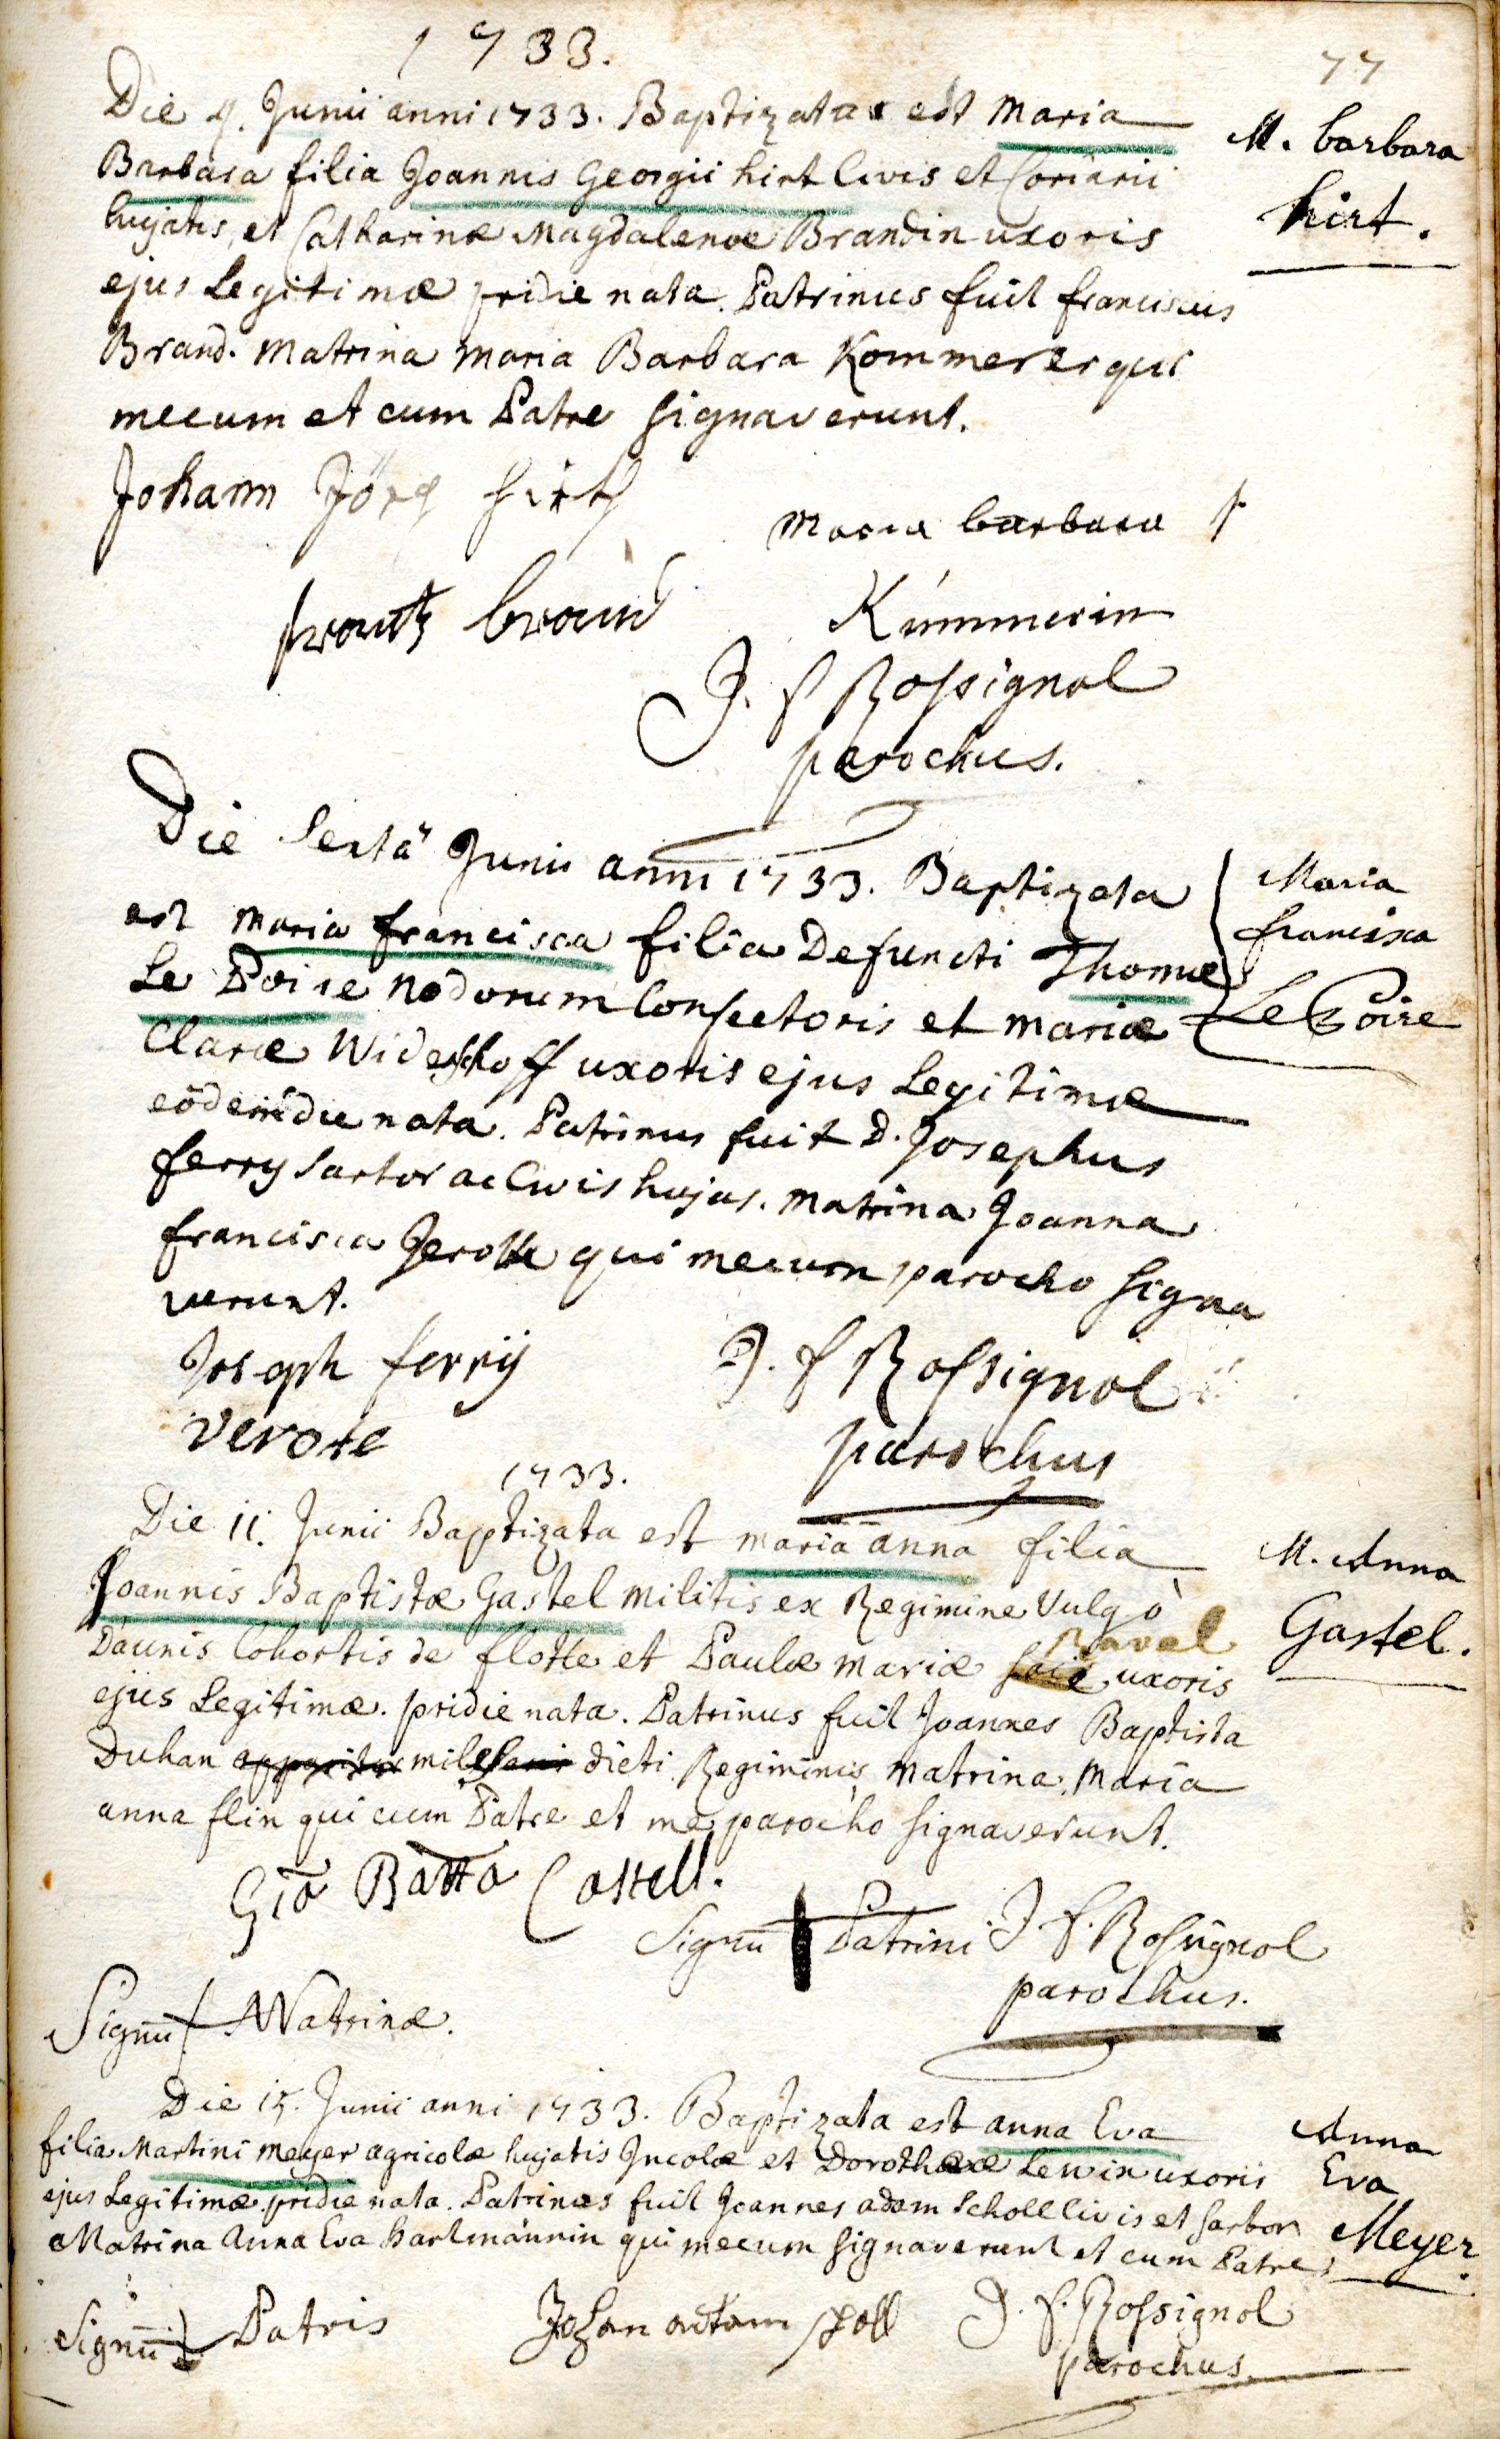 1733.
77
Die 4. Junii anni 1733. Baptizata est Maria
Barbara filia Joannis Georgii hirt Civis et Coriarii
hujatis, et Catharinæ Magdalenæ Brandin uxoris
ejus Legitimæ pridie nata. Patrinus fuit franciscus
Brand. Matrina Maria Barbara Kommerer qui
mecum et cum Patre signaverunt.
M. barbara
hirt.
Johann Jörg hirth
Maria barbara
frantz brand
Kümmerin
J. f Rossignol
parochus.
Die Sextâ Junii anni 1733. Baptizata
est Maria francisca filia Defuncti Thomæ
Le Poire Nodorum Confectoris et Mariæ
Claræ Wideshoff uxoris ejus Legitimæ
eôdem die nata. Patrinus fuit D. Josephus
ferry Sartor ac Civis hujas. Matrina Joanna
francisca Jerotte qui mecum parocho signa
verunt.
Maria
francisca
Le Poire
Joseph ferrÿ
J. f Rossignol
verote
parochus
1733.
Die 11. Junii Baptizata est maria anna filia
Joannis Baptistæ Gastel Militis ex Regimine Vulgò
Daunis Cohortis de flotte et Paulæ Mariæ Raval uxoris
ejus Legitimæ. pridie nata. Patrinus fuit Joannes Baptista
Duhan miles dicti Regiminis Matrina Maria
anna flin qui cum Patre et me parocho signaverunt.
M. Anna
Gastel.
Gio Batta Castell.
Signū Patrini J. f. Rossignol
parochus.
Signū Matrinæ.
Die 15. Junii anni 1733. Baptizata est anna Eva
filia Martini Meyer agricolæ hujatis Incolæ et Dorotheæ Lewin uxoris
ejus Legitimæ pridie nata. Patrinus fuit Joannes adam Scholl Civis et Sartor
Matrina Anna Eva hartmännin qui mecum signaverunt et cum Patre
Anna
Eva
Meyer.
Signū Patris
Johan adam scholl
J. f. Rossignol
parochus.